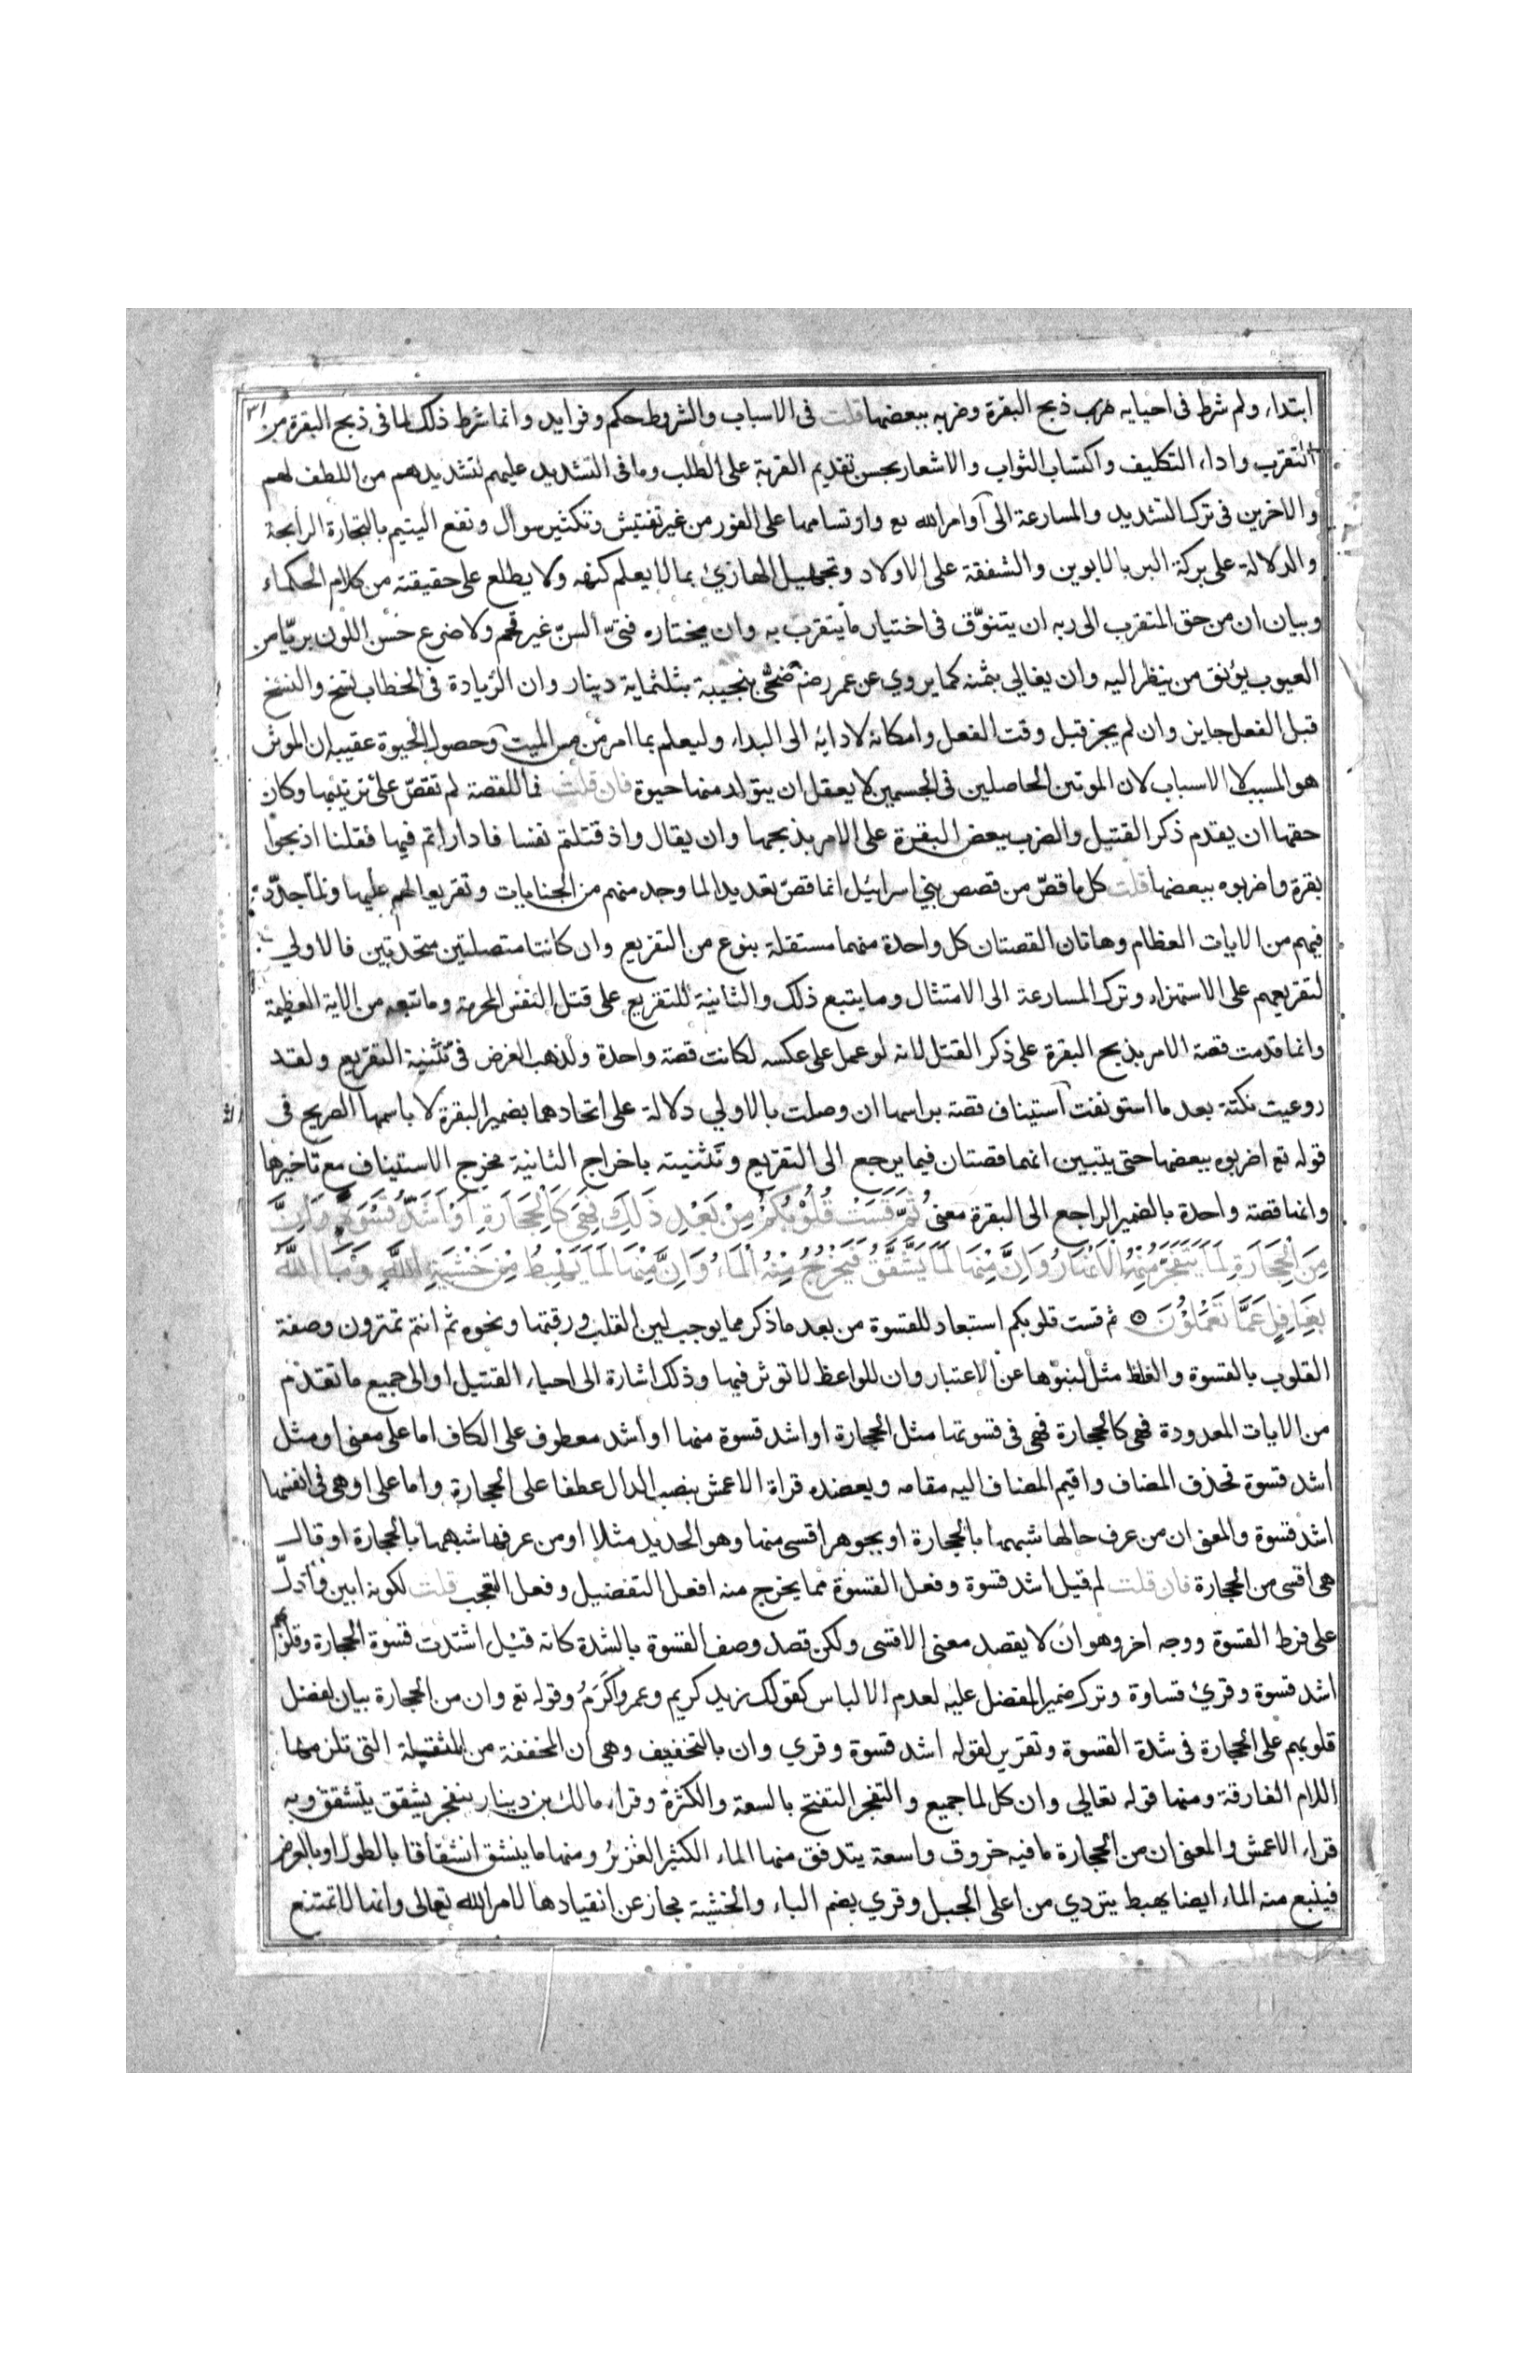 ابتداء ولم شرط فى احيايه ضرب ذبح البقرة وضربه ببعضها قلت فى الاسباب والشروط حكم وفوايد وانما شرط ذلك لما فى ذبح البقرة من
التقرب واداء التكليف واكتساب الثواب والاشعار بحسن تقديم القربة على الطلب وما فى التشديد عليهم لتشديدهم من اللطف لهم
والاخرين فى ترك التشديد والمسارعة الى اوامر الله تع وارتسامها على الفور من غير تفتيش وتكثير سوال ونفع اليتيم بالتجارة الرابحة
والدلالة على بركة البر بالابوين والشفقة على الاولاد وتجهيل الهازئ بما لا يعلم كنهه ولا يطلع على حقيقته من كلام الحكماء
وبيان ان من حق المتقرب الى ربه ان يتنوّق فى اختيار ما يتقرب به وان يختاره فتىّ السنّ غير قحم ولا ضرع حسن اللون بريّا من
العيوب يؤنق من ينظر اليه وان يغالى بثمنه كما يروي عن عمر رضه ضحّى بنجيبة بثلثماية دينار وان الزيادة فى الخطاب نسخ والنسخ
قبل الفعل جايز وان لم يجز قبل وقت الفعل وامكانه لادايه الى البداء وليعلم بما امر من مس الميت وحصول الحيوة عقيبه ان الموثر
هو المسبب لا الاسباب لان الموتين الحاصلين فى الجسمين لا يعقل ان يتولد منهما حيوة فان قلت فما للقصة لم تقصّ على ترتيبها وكان
حقها ان يقدم ذكر القتيل والضرب ببعض البقرة على الامر بذبحها وان يقال واذ قتلتم نفسا فاداراتم فيها فقلنا اذبحوا
بقرة واضربوه ببعضها قلت كل ما قصّ من قصص بني اسرائيل انما قصّ تعديدا لما وجد منهم من الجنايات وتقريعا لهم عليها ولما جدّد
فيهم من الايات العظام وهاتان القصتان كل واحدة منهما مستقلة بنوع من التقريع وان كانتا متصلتين متحدتين فالاولي
لتقريعهم على الاستهزاء وترك المسارعة الى الامتثال وما يتبع ذلك والثانية للتقريع على قتل النفس المحرمة وما تبعه من الاية العظيمة
وانما قدمت قصة الامر بذبح البقرة على ذكر القتل لانه لو عمل على عكسه لكانت قصة واحدة ولذهب الغرض فى تثنية التقريع ولقد
روعيت نكتة بعد ما استونفت استيناف قصة براسها ان وصلت بالاولي دلالة على اتحادهما بضمير البقرة لا باسمها الصريح فى
قوله تع اضربوه ببعضها حتى يتبين انهما قصتان فيما يرجع الى التقريع وتثنيته باخراج الثانية مخرج الاستيناف مع تاخيرها
وانما قصة واحدة بالضمير الراجع الى البقرة معنى ثُمَّ قَسَتْ قُلُوبُكُمْ مِنْ بَعْدِ ذَلِكَ فَهِيَ كَالْحِجَارَةِ اَوْ اَشَدُّ قَسْوَةً وَاِنَّ
مِنَ الْحِجَارَةِ لَمَا يَتَفَجَّرُ مِنْهُ الْاَنْهَارُ وَاِنَّ مِنْهَا لَمَا يَشَّقَّقُ فَيَخْرُجُ مِنْهُ الْمَاءُ وَاِنَّ مِنْهَا لَمَا يَهْبِطُ مِنْ خَشْيَةِ اللَّهِ وَمَا اللَّهُ
بِغَافِلٍ عَمَّا تَعْمَلُوْنَ ثم قست قلوبكم استبعاد للقسوة من بعد ما ذكر مما يوجب لين القلب ورقتها ونحوه ثم انتم تمترون وصفة
القلوب بالقسوة والغلظ مثل لنبوّها عن الاعتبار وان للواعظ لا توثر فيها وذلك اشارة الى احياء القتيل او الى جميع ما تقدم
من الايات المعدودة فهى كالحجارة فهى فى قسوتها مثل الحجارة او اشد قسوة منها او اشد معطوف على الكاف اما على معنى او مثل
اشد قسوة فحذف المضاف واقيم المضاف اليه مقامه ويعضده قراة الاعمش بنصب الدال عطفا على الحجارة واما على او هى فى انفسها
اشد قسوة والمعنى ان من عرف حالها شبهها بالحجارة او بجوهر اقسى منها وهو الحديد مثلا او من عرفها شبهها بالحجارة او قال
هى اقسى من الحجارة فان قلت لم قيل اشد قسوة وفعل القسوة مما يخرج منه افعل التفضيل وفعل التعجب قلت لكونه ابين وادلّ
على فرط القسوة ووجه اخر وهو ان لا يقصد معنى الاقسى ولكن قصد وصف القسوة بالشدة كانه قيل اشتدت قسوة الحجارة وقلوبهم
اشد قسوة وقرئ قساوة وترك ضمير المفضل عليه لعدم الالباس كقولك زيد كريم وعمرو اكرَمُ وقوله تع وان من الحجارة بيان لفضل
قلوبهم على الحجارة فى شدة القسوة وتقرير لقوله اشد قسوة وقري وان بالتخفيف وهى ان المخففة من المثقيلة التى تلزمها
اللام الفارقة ومنها قوله تعالى وان كل لما جميع والتفجر التفتح بالسعة والكثرة وقراء مالك بن دينار ينفجر يشقق يتشقق وبه
قراء الاعمش والمعنى ان من الحجارة ما فيه خروق واسعة يتدفق منها الماء الكثير الغزيرُ ومنها ما ينشق انشقاقا بالطول او بالعرض
فينبع منه الماء ايضا يهبط يتردي من اعلى الجبل وقري بضم الباء والخشية مجاز عن انقيادها لامر الله تعالى وانها لا تمتنع